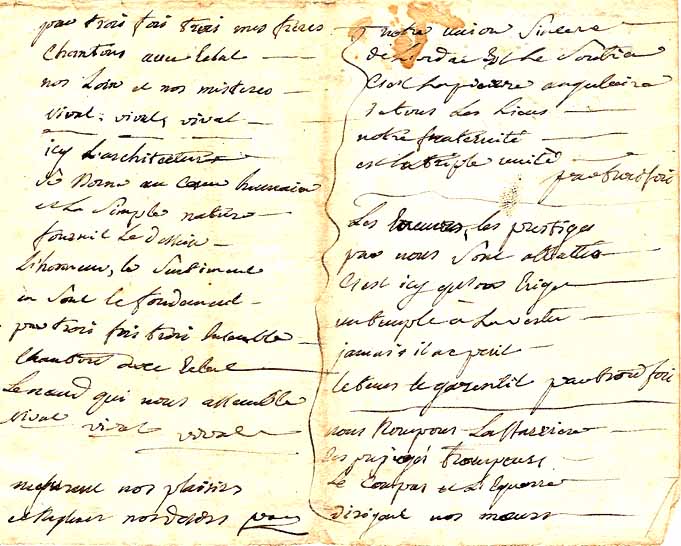 par trois fois trois mes frères
Chantons avec eclat
nos Loix et nos misteres
vivat, vivat, vivat
icy L'architecture
Se Borne au Coeur humain
et La Simple nature
fournit Le Dessin
L'honneur, le Sentiment
en Sont le fondement
par trois fois trois Ensemble
Chantons avec Eclat
Le nœud qui nous assemble
vivat vivat vivat
mesurent nos plaisirs
et nos desirs par
notre union Sincere
de L'ordre Est Le Soutien
C'est La pierre angulaire
De tous Les Liens
notre fraternité
est La triple unité
par trois fois
Les Erreurs, les prestiges
par nous Sont abattus
C'est icy qu'on Erige
un temple à La vertu
jamais il ne perit
le tems le garentit par trois fois
nous Rompons La Barriere
des prejugés trompeurs
Le Compas et L'Equerre
Dirigent nos mœurs